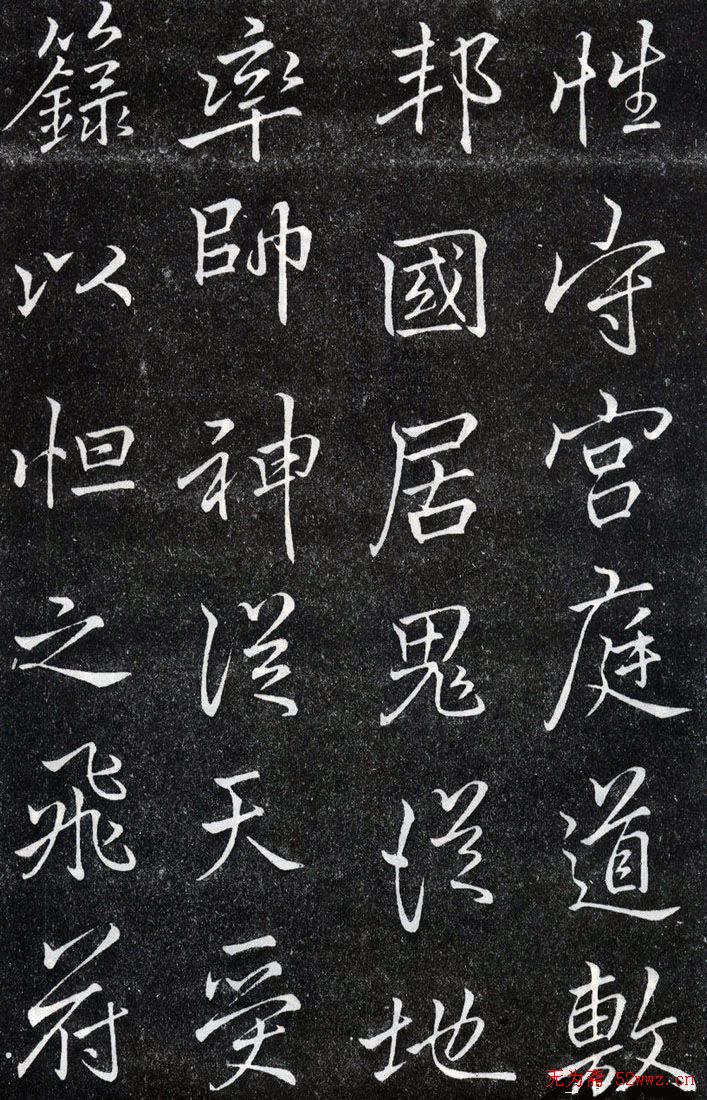 性守宮庭道敷
邦國居鬼從地
率帥神從天受
籙以怛之飛符
无为斋.52wwz.cn